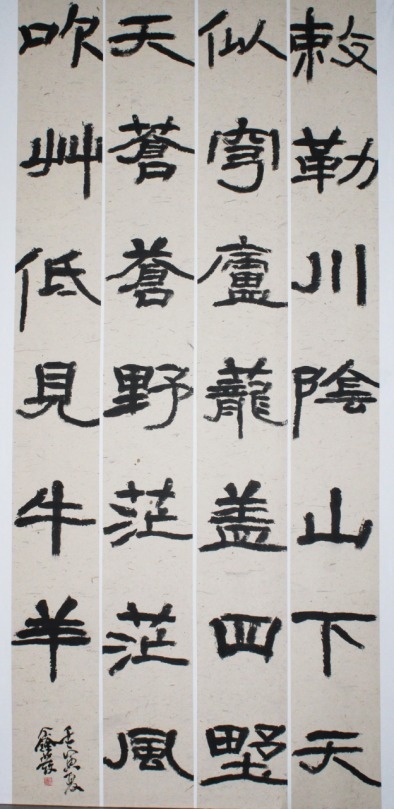 敕勒川陰山下天
似穹廬蘢盖四墅
天蒼蒼野茫茫風
吹艸低見牛羊
壬寅夏